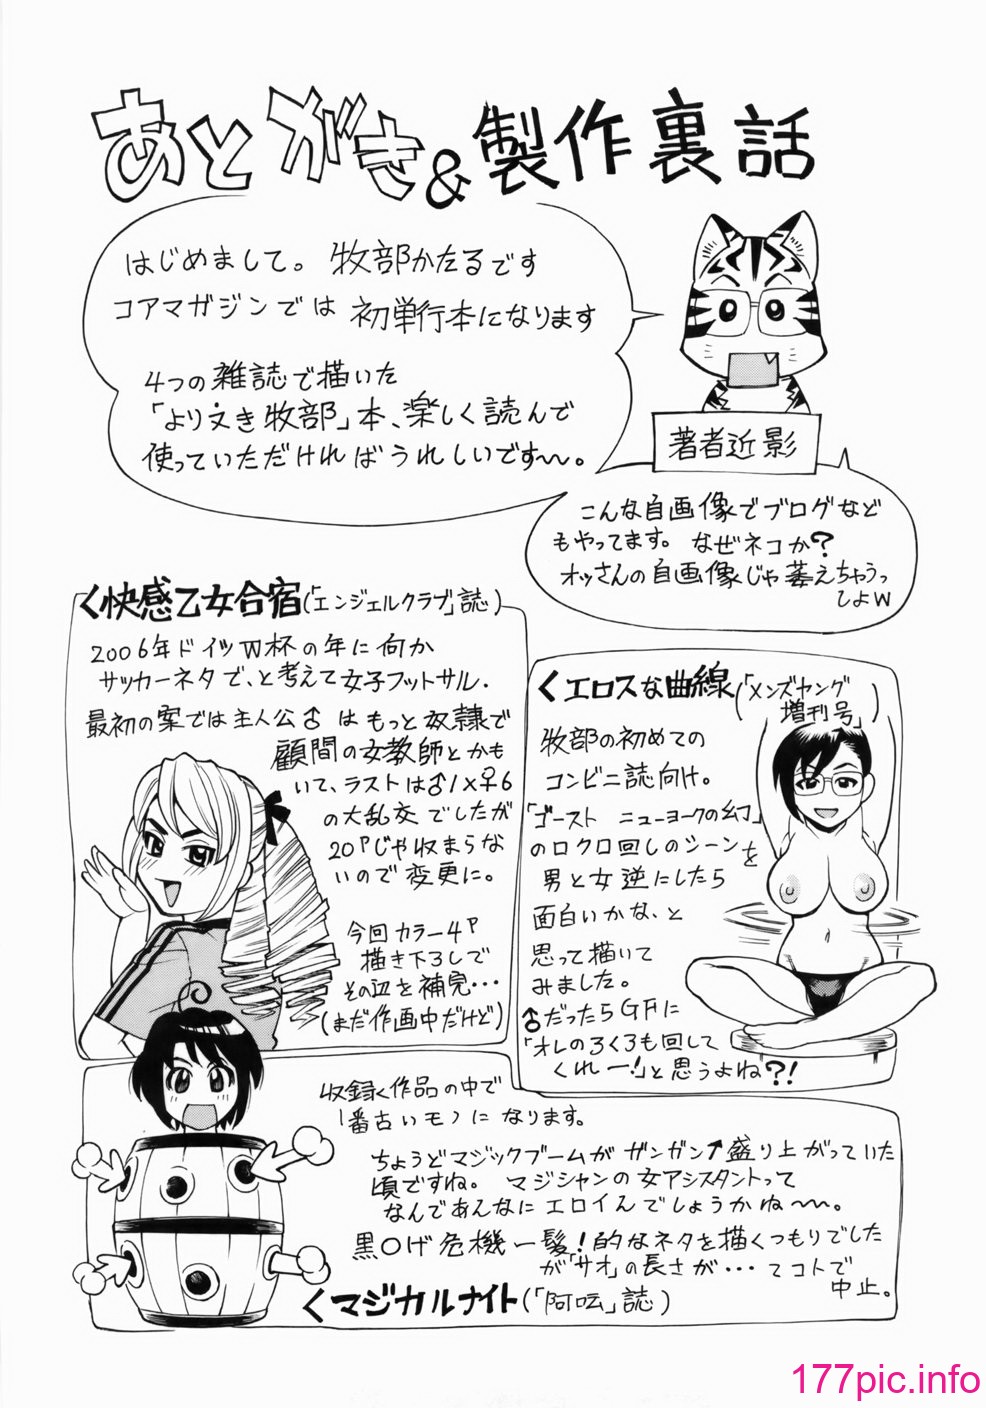 あとがき&製作裏話
はじめまして。牧部かたるです
コアマガジンでは初単行本になります
4つの雑誌で描いた
「より文き牧部」本、楽しく読んで
使っていただければうれしいです〜。
著者近影
こんな自画像でブログなど
もやってます。なぜネコか?
オッさんの自画像じゃ萎えちゃうっ
しょw
く快感乙女合宿(「エンジェルクラブ」誌)
2006年ドイツW杯の年に何か
サッカーネタで、と考えて女子フットサル.
最初の案では主人公♂はもっと奴隷で
顧間の女教師とかも
いて、ラストは♂1×♀6
の大乱交でしたが
20Pじゃ収まらな
いので変更に。
今回カラー4P
描き下ろしで
その辺を補完・・・
(まだ作画中だけど)
くエロスな曲線(「メンズヤング
増刊号」)
牧部の初めての
コンビニ誌向け。
「ゴースト ニューヨークの幻」
のロクロ回しのシーンを
男と女逆にしたら
面白いかな、と
思って描いて
みました。
♂だったらGFに
「オレのろくろも回して
くれー!」と思うよね?!
収録く作品の中で
1番古いモノになります。
ちょうどマジックブームがガンガン↑盛り上がっていた
頃ですね。マジシャンの女アシスタントって
なんであんなにエロイんでしょうかね〜〜。
黒〇げ危機一髪!的なネタを描くつもりでした
が「サオ」の長さが・・・てコトで
中止。
くマジカルナイト(「阿吽」誌)
177pic.info